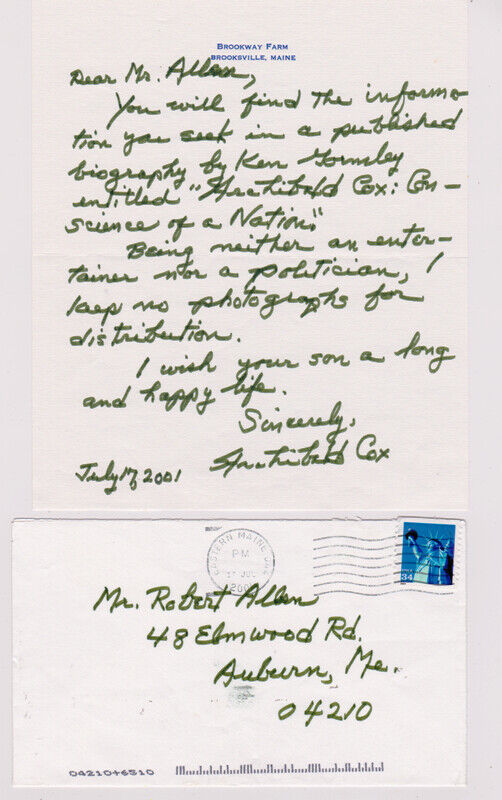 BROOKWAY FARM
BROOKSVILLE, MAINE
Dear Mr. Allen,
You will find the informa-
tion you seek in a published
biography by Ken Gormley
entitled "Archibald Cox: Con-
science of a Nation."
Being neither an enter-
tainer nor a politician, I
keep no photographs for
distribution.
I wish your son a long
and happy life.
Sincerely,
Archibald Cox
July 17, 2001
EASTERN MAINE
PM
17 JUL
2001
34
Mr. Robert Allen
48 Elmwood Rd.
Auburn, Me.
04210
04210+6510